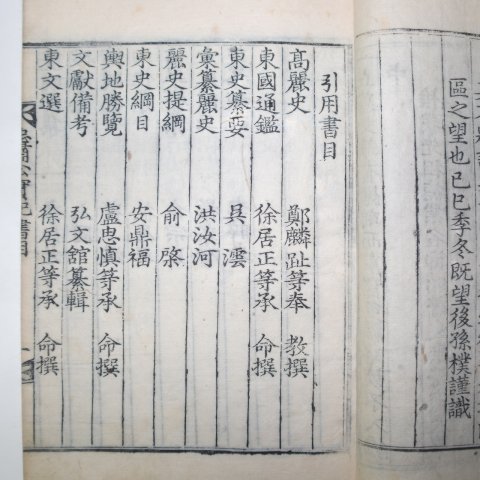 區之望也己巳季冬既望後孫樸謹識
引用書目
高麗史 鄭麟趾等奉 教撰
東國通鑑 徐居正等承 命撰
東史纂要 吳澐
彙纂麗史 洪汝河
麗史提綱 俞棨
東史綱目 安鼎福
輿地勝覽 盧思愼等承 命撰
文獻備考 弘文館纂輯
東文選 徐居正等承 命撰